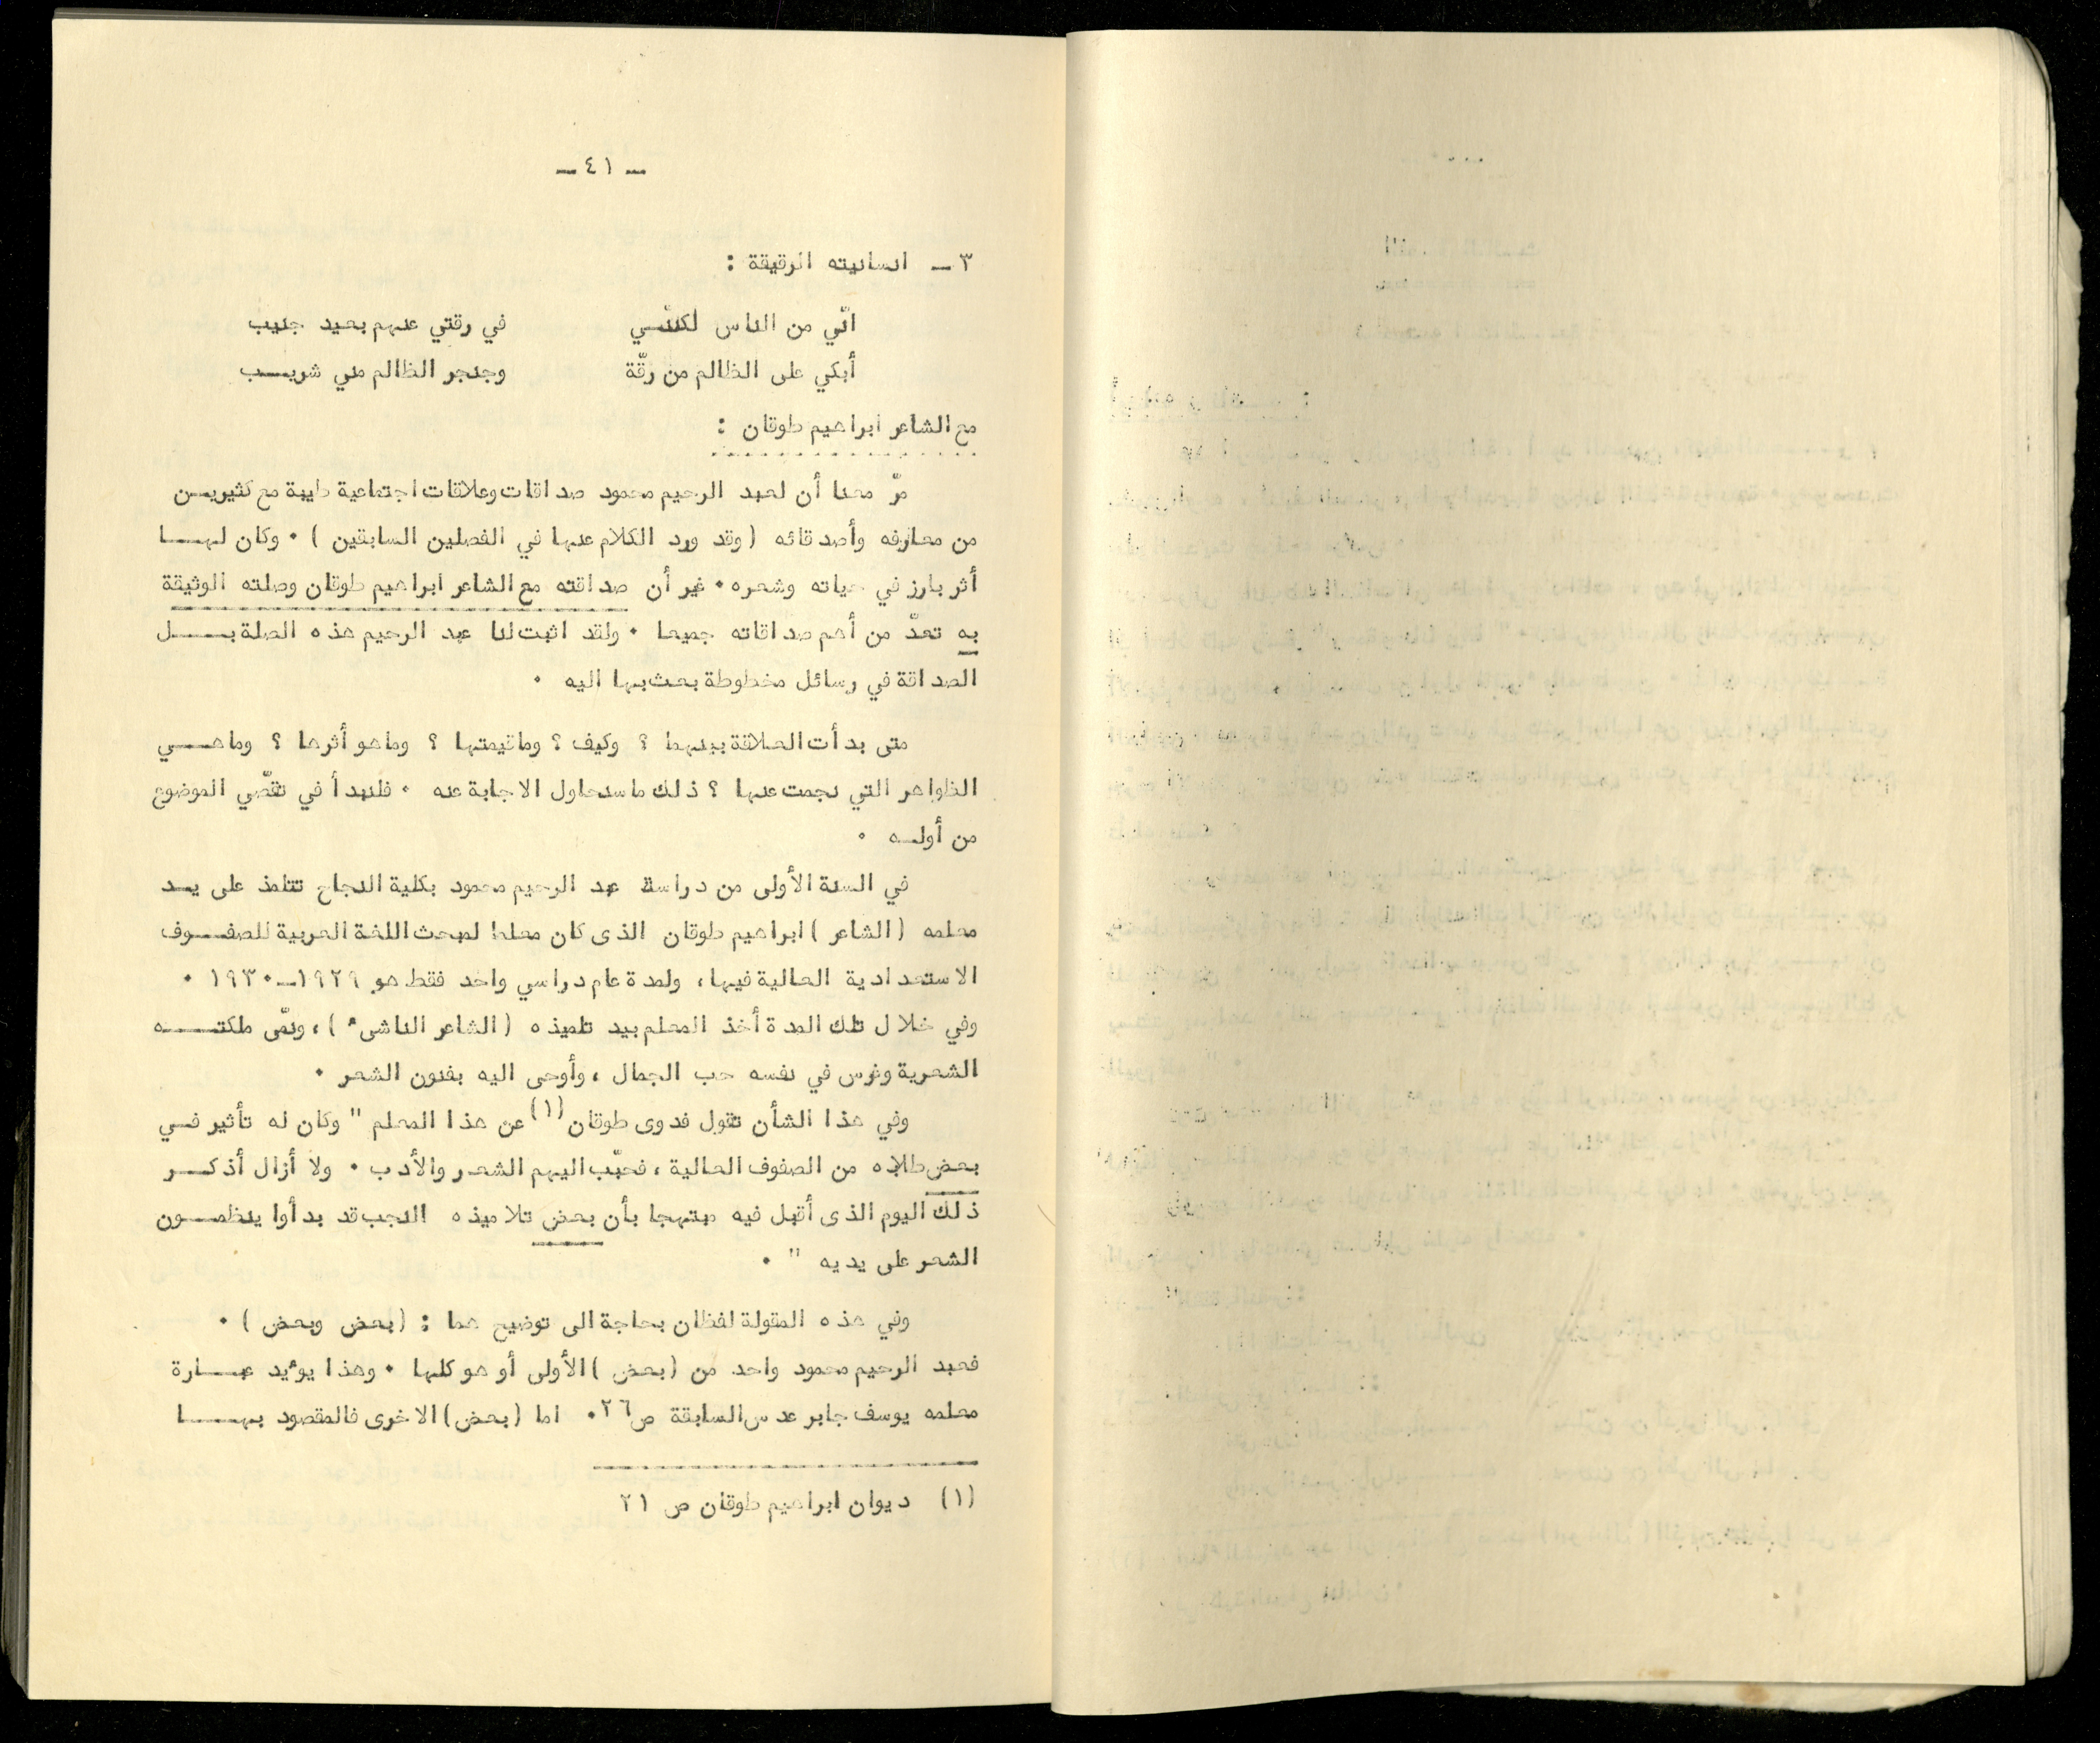 ـ ٤١ ـ
٣ ـ انسانيته الرقيقة :
انّي من الناس لكنّـــي في رقتي عنهم بعيد جنيب
أبكي على الظالم من رقّة وخنجر الظالم مني شريـــب
مع الشاعر ابراهيم طوقان :
مرّ معنا أن لعبد الرحيم محمود صداقات وعلاقات اجتماعية طيبة مع كثيريــن
من معارفه وأصدقائه (وقد ورد الكلام عنها في الفصلين السابقين ) ٠ وكان لهـــا
أثر بارز في حياته وشعره ٠ غير أن صداقته مع الشاعر ابراهيم طوقان وصلته الوثيقة
به تعدّ من أهم صداقاته جميعا ٠ ولقد اثبت لنا عبد الرحيم هذه الصلة بـــل
الصداقة في رسائل مخطوطة بعث بها اليه ٠
متى بدأت العلاقة بينهما ؟ وكيف ؟ وماقيمتها ؟ وماهو أثرها ؟ وماهــي
الظواهر التي نجمت عنها ؟ ذلك ماسنحاول الاجابة عنه ٠ فلنبدأ في تقصّي الموضوع
من أولــه ٠
في السنة الأولى من دراسة عبد الرحيم محمود بكلية النجاح تتلمذ على يــد
معلمه (الشاعر ) ابراهيم طوقان الذى كان معلما لمبحث اللغة العربية للصفــوف
الاستعدادية العالية فيها ، ولمدة عام دراسي واحد فقط هو ١٩٢٩ــ١٩٣٠ ٠
وفي خلال تلك المدة أخذ المعلم بيد تلميذه (الشاعر الناشىء )، ونمّى ملكتــــه
الشعرية وغرس في نفسه حب الجمال ، وأوحى اليه بفنون الشعر ٠
وفي هذا الشأن تقول فدوى طوقان (١) عن هذا المعلم " وكان له تأثير فــي
بعض طلابه من الصفوف العالية ، فحبّب اليهم الشعر والأدب ٠ ولا أزال أذكــر
ذلك اليوم الذى أقبل فيه مبتهجا بأن بعض تلاميذه النجب قد بدأوا ينظمــون
الشعر على يديه " ٠
وفي هذه المقولة لفظان بحاجة الى توضيح هما : (بعض وبعض ) ٠
فعبد الرحيم محمود واحد من (بعض ) الأولى أو هو كلها ٠ وهذا يوءيد عبــارة
معلمه يوسف جابر عدس السابقة ص٢٦ ٠ اما (بعض) الاخرى فالمقصود بهـــا
(١) ديوان ابراهيم طوقان ص ٢١